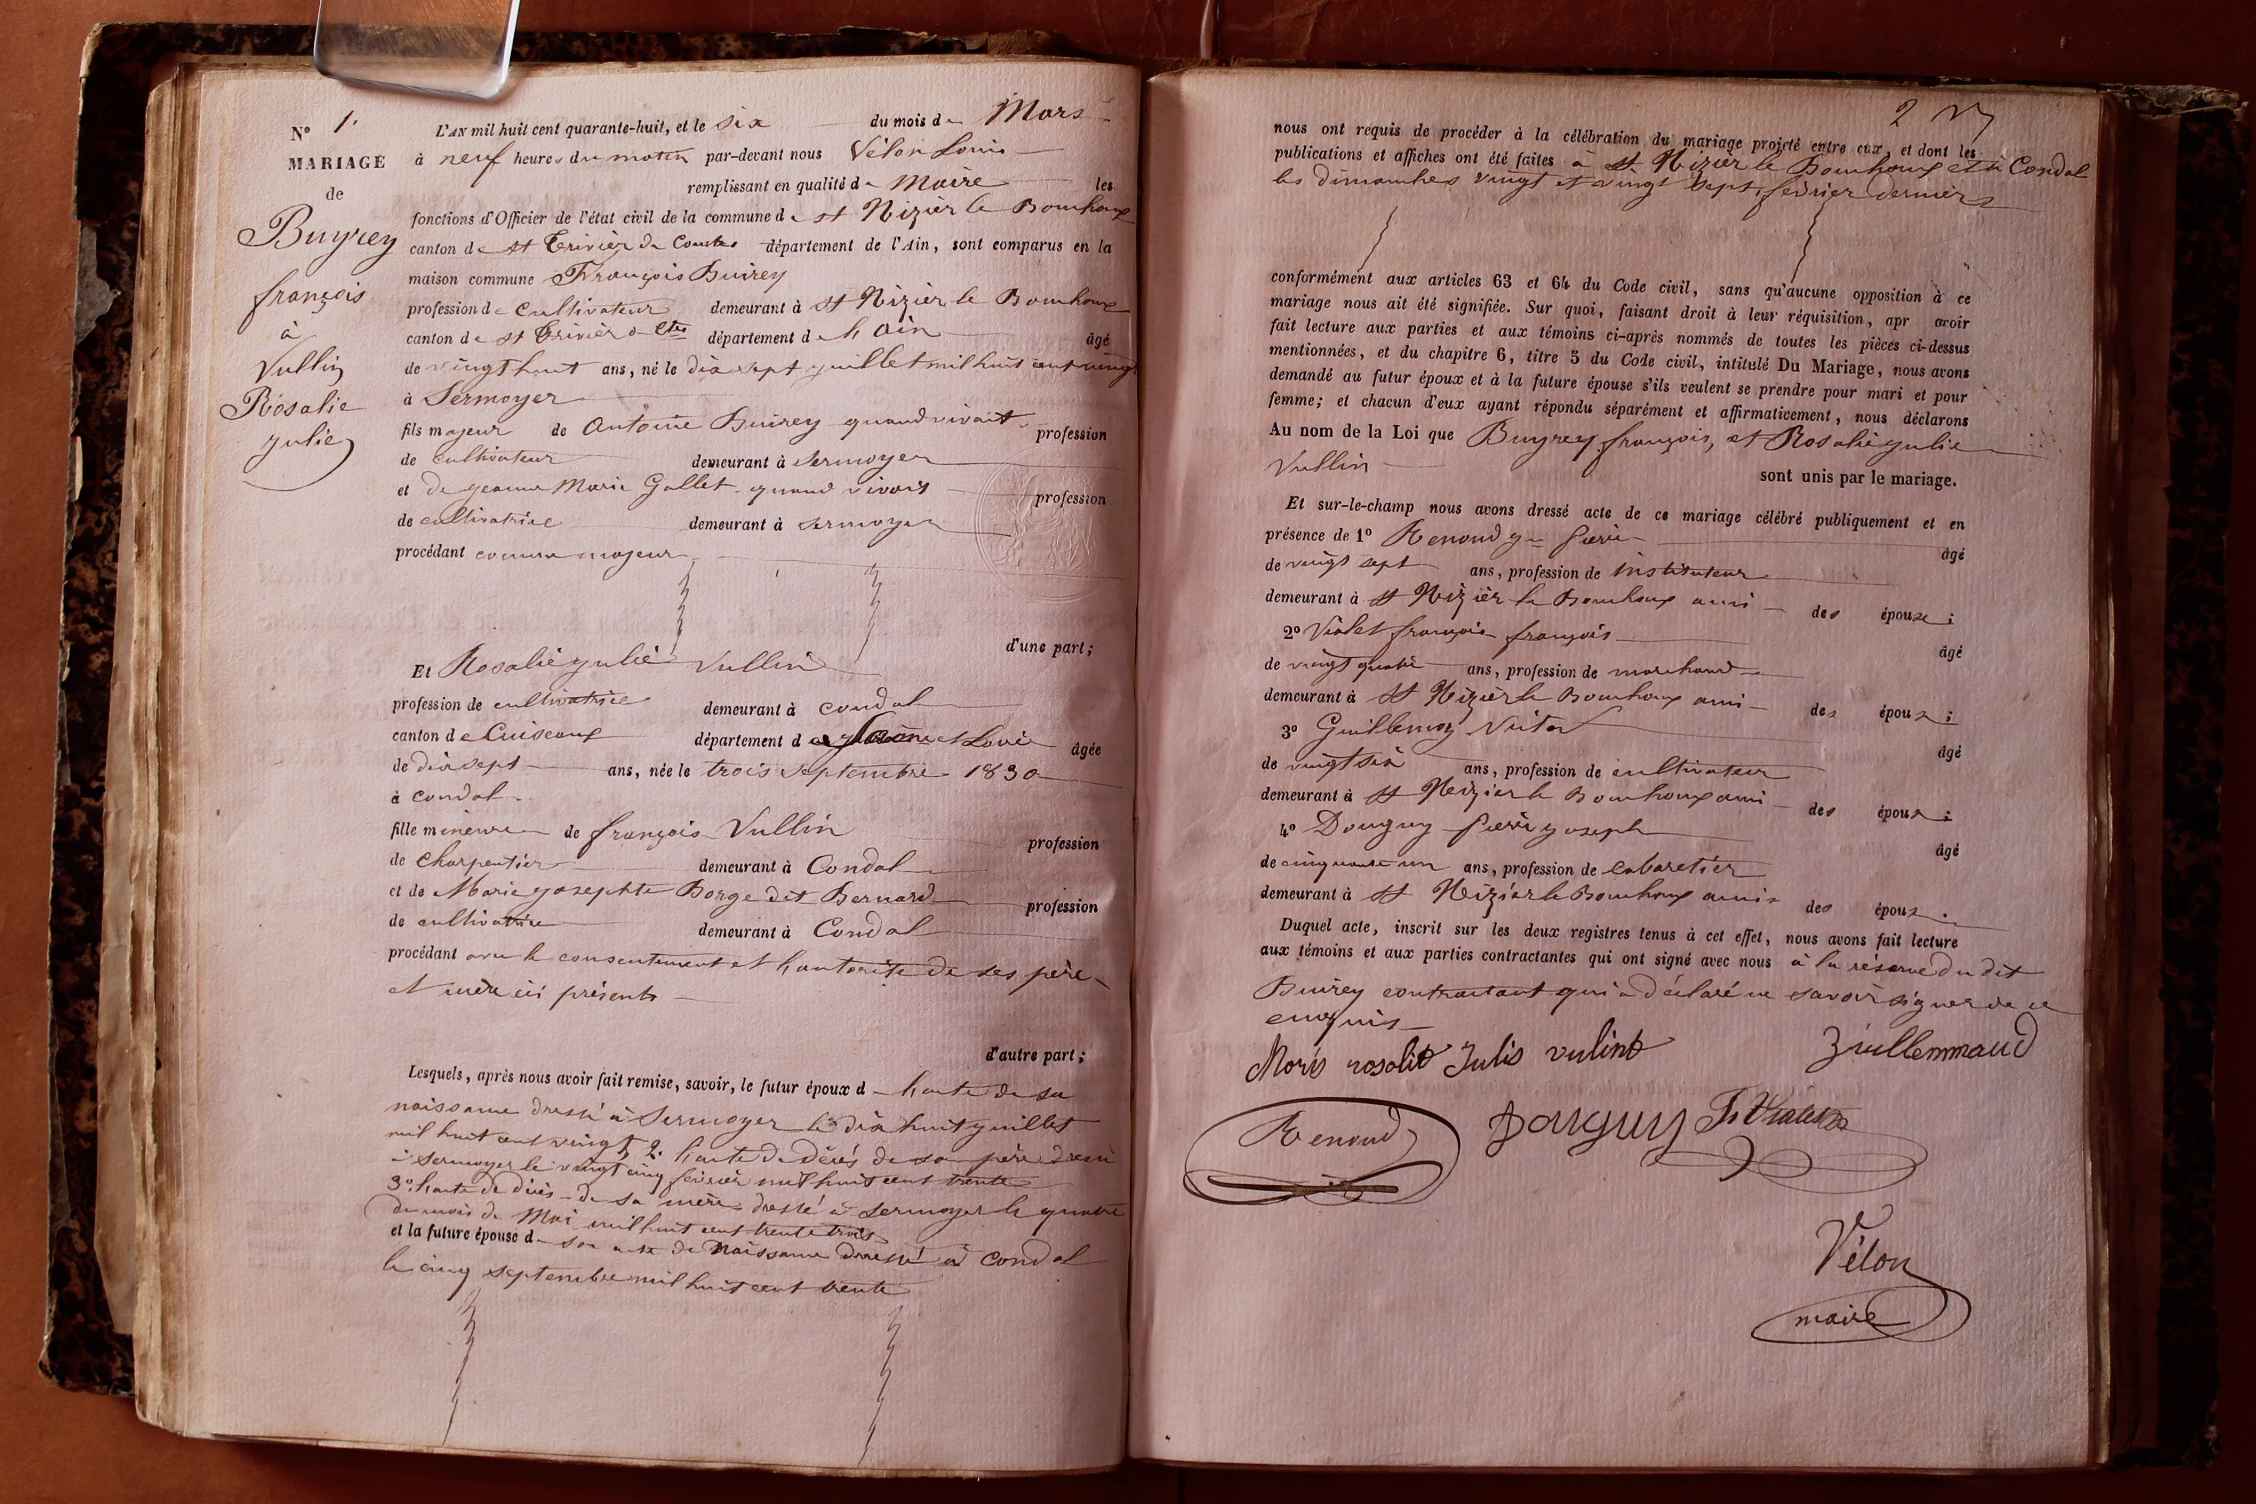 N° 1.
MARIAGE
de
Buyrey
françois
à
Vullin
Rosalie
julie
L'AN mil huit cent quarante-huit, et le six du mois de Mars
à neuf heures du matin par-devant nous Vélon Louis
remplissant en qualité de Maire les
fonctions d'Officier de l'état civil de la commune de st Nizier le Bouchoux
canton de st Trivier de Courtes département de l'Ain, sont comparus en la
maison commune François Buirey
profession de cultivateur demeurant à st Nizier le Bouchoux
canton de st Trivier de Ctes département de l'ain âgé
de vingt huit ans, né le dix sept juillet mil huit cent vingt
à Sermoyer
fils majeur de Antoine Buirey quand vivait profession
de cultivateur demeurant à sermoyer
et de jeanne Marie Gallet quand vivait profession
de cultivatrice demeurant à sermoyer
procédant comme majeur
d'une part;
Et Rosalie julie Vullin
profession de cultivatrice demeurant à condal
canton de Cuiseaux département de Saône et Loire âgée
de dix sept ans, née le trois septembre 1830
à condal
fille mineure de françois Vullin profession
de charpentier demeurant à Condal
et de Marie josephte Borge dit Bernard profession
de cultivatrice demeurant à Condal
procédant avec le consentement et l'autorité de ses père
et mère ici présents
d'autre part;
Lesquels, après nous avoir fait remise, savoir, le futur époux d l'acte de sa
naissance dressé à Sermoyer le dix huit juillet
mil huit cent vingt, 2. l'acte de décès de son père dressé
à sermoyer le vingt cinq février mil huit cent trente
3° l'acte de décès de sa mère dressé à sermoyer le quatre
du mois de Mai mil huit cent trente trois
et la future épouse de son acte de Naissance dressé à condal
le cinq septembre mil huit cent trente
2
nous ont requis de procéder à la célébration du mariage projeté entre eux, et dont les
publications et affiches ont été faites à st Nizier le Bouchoux et à Condal
les dimanches vingt et vingt sept février derniers
conformément aux articles 63 et 64 du Code civil, sans qu'aucune opposition à ce
mariage nous ait été signifiée. Sur quoi, faisant droit à leur réquisition, apr avoir
fait lecture aux parties et aux témoins ci-après nommés de toutes les pièces ci-dessus
mentionnées, et du chapitre 6, titre 5 du Code civil, intitulé Du Mariage, nous avons
demandé au futur époux et à la future épouse s'ils veulent se prendre pour mari et pour
femme; et chacun d'eux ayant répondu séparément et affirmativement, nous déclarons
Au nom de la Loi que Buyrey françois, et Rosalie julie
Vullin sont unis par le mariage.
Et sur-le-champ nous avons dressé acte de ce mariage célébré publiquement et en
présence de 1° Renoud Pierre âgé
de vingt sept ans, profession de instituteur
demeurant à st Nizier le Bouchoux ami des époux;
2° Violet françois françois âgé
de vingt quatre ans, profession de marchand
demeurant à st Nizier le Bouchoux ami des époux;
3° Guillemoz Victor âgé
de vingt six ans, profession de cultivateur
demeurant à st Nizier le Bouchoux ami des époux;
4° Douguy Pierre joseph âgé
de cinquante un ans, profession de cabaretier
demeurant à st Nizier le Bouchoux ami des époux.
Duquel acte, inscrit sur les deux registres tenus à cet effet, nous avons fait lecture
aux témoins et aux parties contractantes qui ont signé avec nous à la réserve du dit
Buirey contractant qui a déclaré ne savoir signer de ce
enquis
Mori rosolie Julis vulint
Renoud Douguy
Vélon
maire